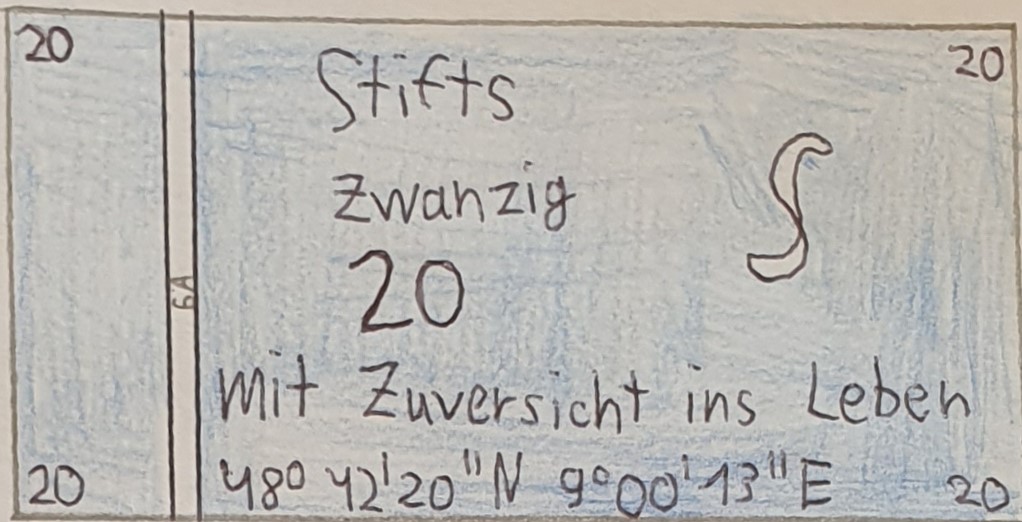 20
20
Stifts
zwanzig
20
6A
mit Zuversicht ins Leben
20
48° 42'20"N 9°00'13"E
20